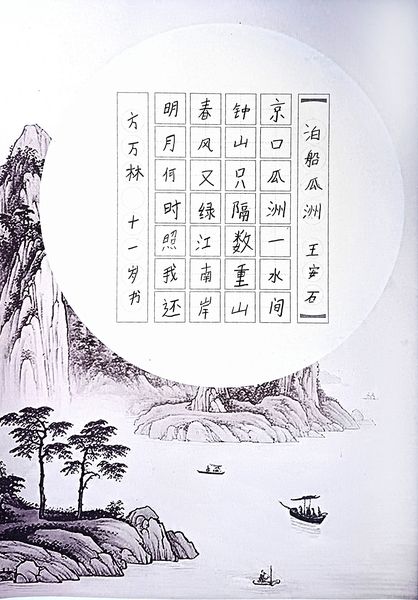 泊船瓜洲 王安石
京口瓜洲一水间
钟山只隔数重山
春风又绿江南岸
明月何时照我还
方万林 十一岁书